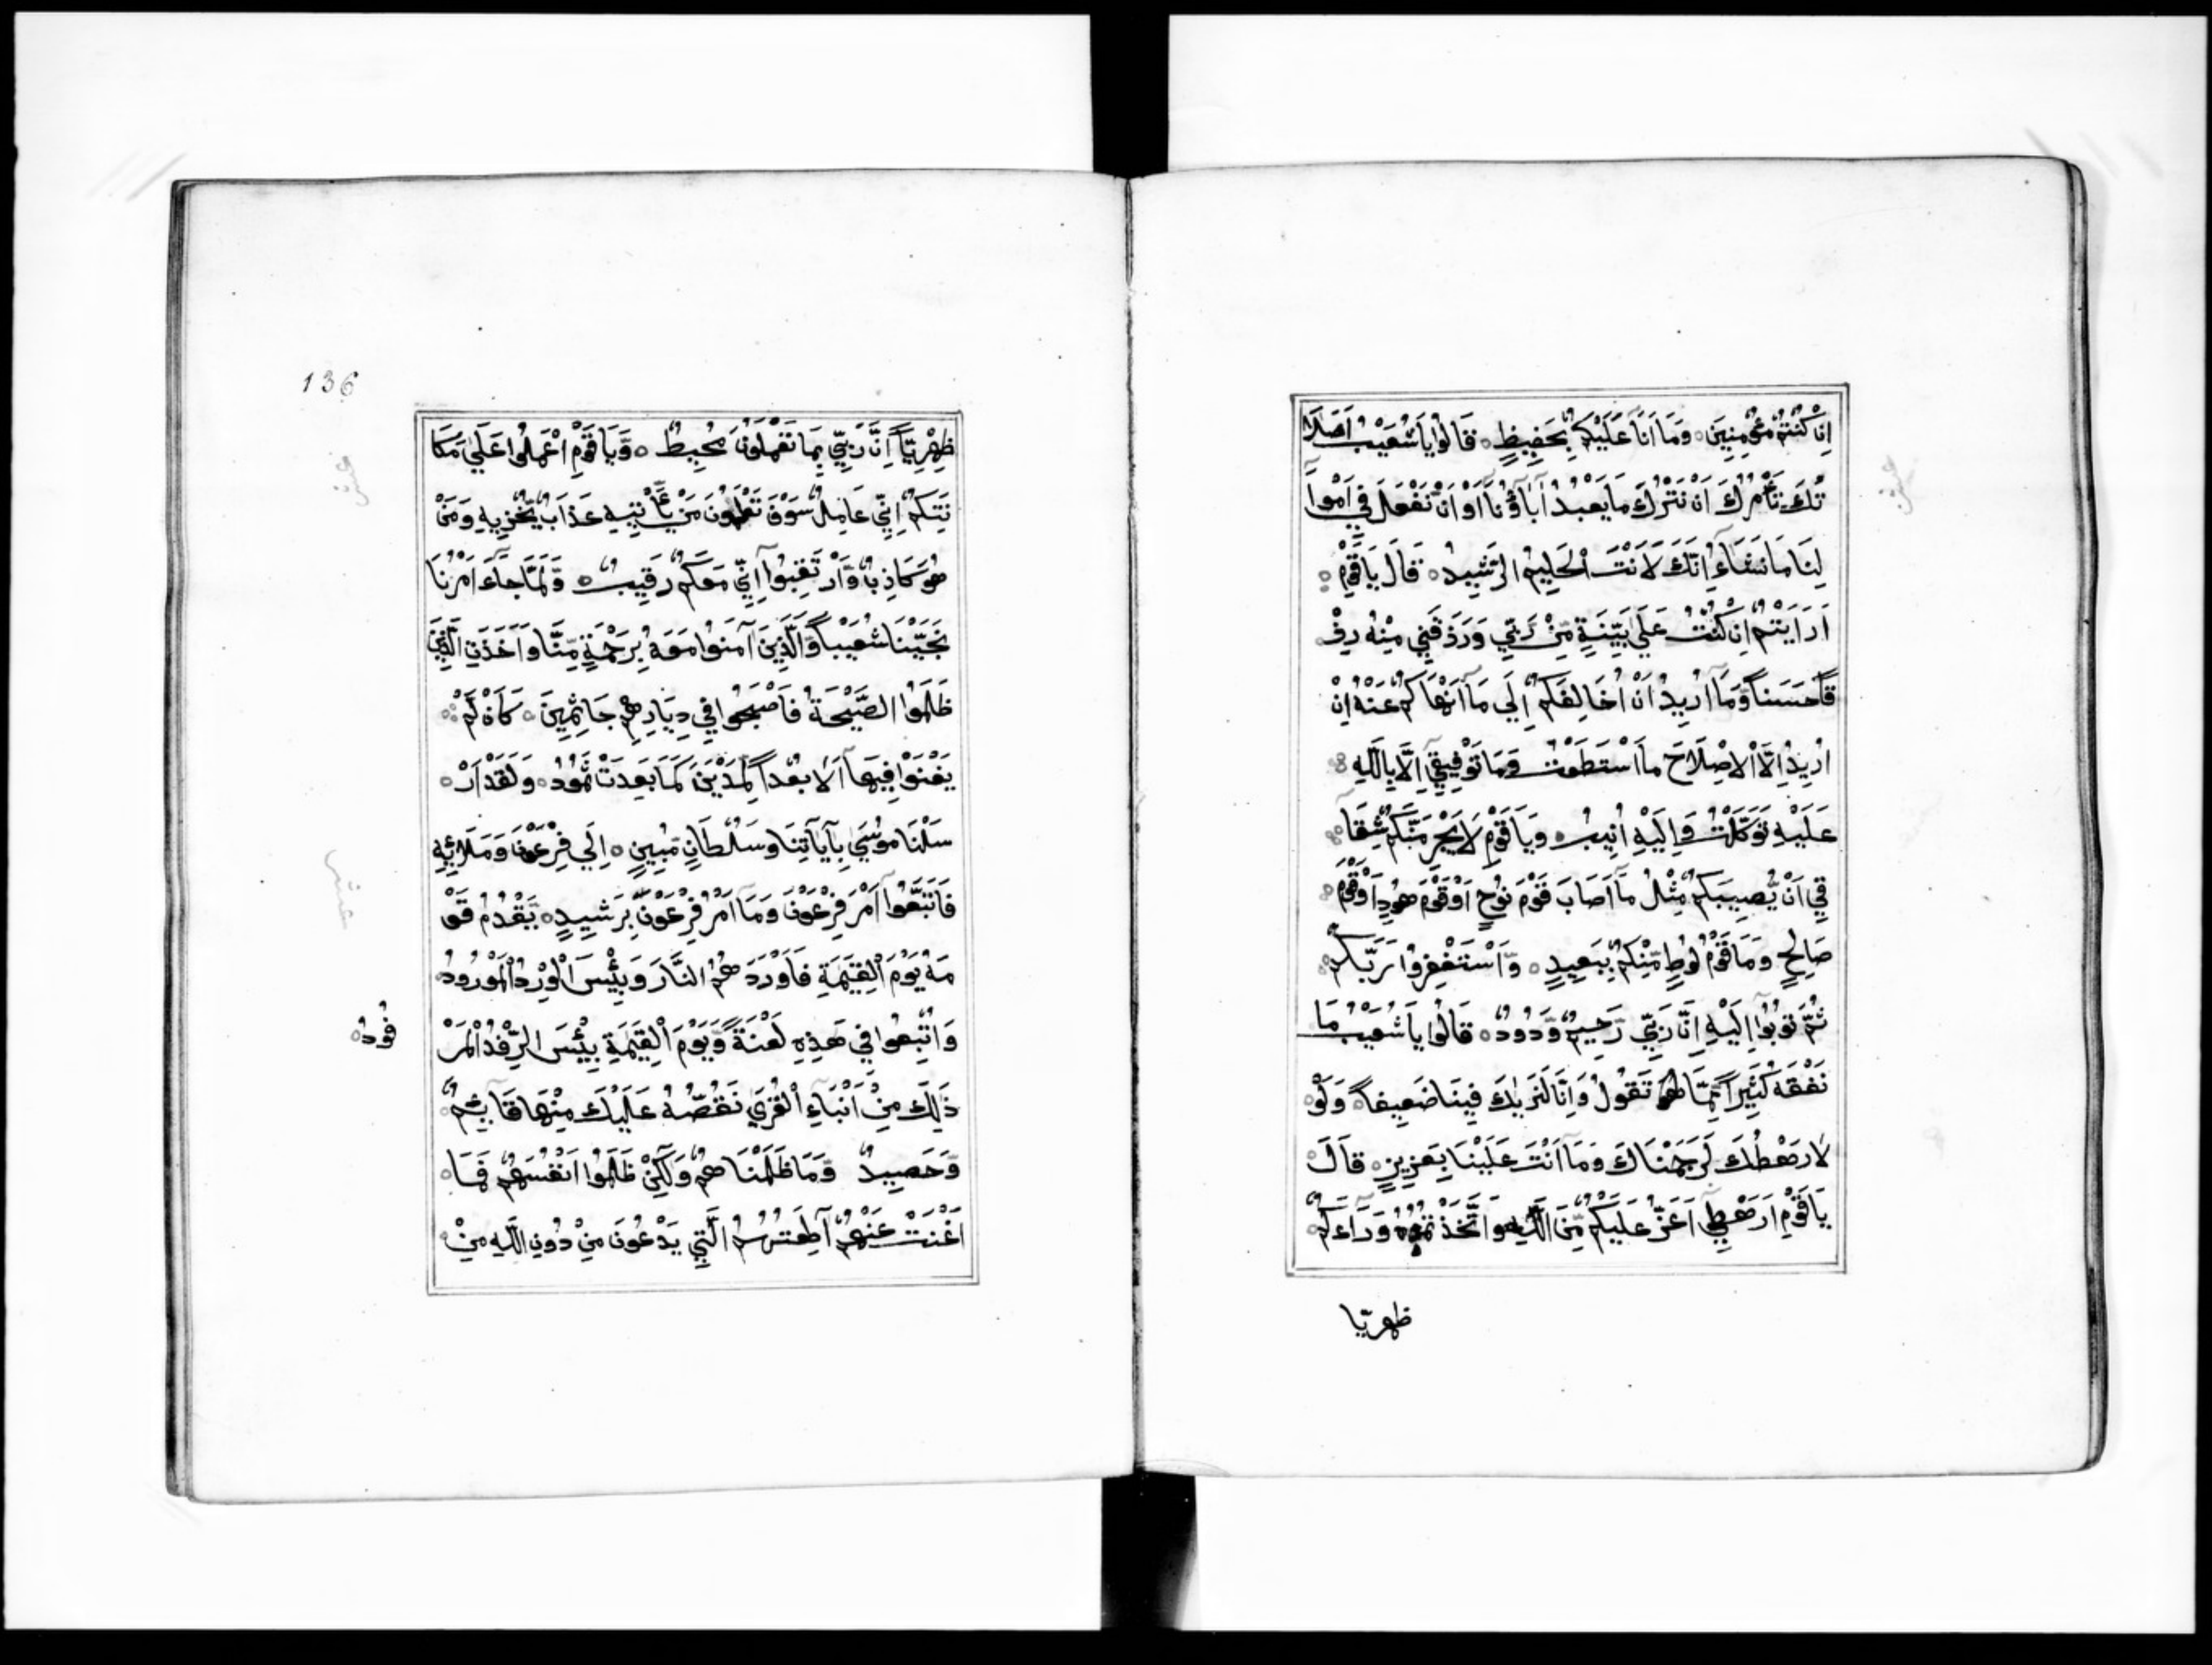 اِنْ كُنْتُمْ مُؤْمِنِينَ وَمَا اَنَا عَلَيْكُمْ بِحَفِيظٍ قَالُوا يَا شُعَيْبُ اَصَلَا
تُكَ تَأْمُرُكَ اَنْ نَتْرُكَ مَا يَعْبُدُ آبَاؤُنَا اَوْ اَنْ نَفْعَلَ فِي اَمْوَا
لِنَا مَا نَشَاءُ اِنَّكَ لَاَنْتَ الْحَلِيمُ الرَّشِيدُ قَالَ يَا قَوْمِ
اَرَاَيْتُمْ اِنْ كُنْتُ عَلَى بَيِّنَةٍ مِّنْ رَبِّي وَرَزَقَنِي مِنْهُ رِزْ
قًا حَسَنًا وَمَا اُرِيدُ اَنْ اُخَالِفَكُمْ اِلَى مَا اَنْهَاكُمْ عَنْهُ اِنْ
اُرِيدُ اِلَّا الْاِصْلَاحَ مَا اسْتَطَعْتُ وَمَا تَوْفِيقِي اِلَّا بِاللَّهِ
عَلَيْهِ تَوَكَّلْتُ وَاِلَيْهِ اُنِيبُ وَيَا قَوْمِ لَا يَجْرِمَنَّكُمْ شِقَا
قِي اَنْ يُصِيبَكُمْ مِثْلُ مَا اَصَابَ قَوْمَ نُوحٍ اَوْ قَوْمَ هُودٍ اَوْ قَوْمَ
صَالِحٍ وَمَا قَوْمُ لُوطٍ مِّنْكُمْ بِبَعِيدٍ وَاسْتَغْفِرُوا رَبَّكُمْ
ثُمَّ تُوبُوا اِلَيْهِ اِنَّ رَبِّي رَحِيمٌ وَّدُودٌ قَالُوا يَا شُعَيْبُ مَا
نَفْقَهُ كَثِيرًا مِّمَّا تَقُولُ وَاِنَّا لَنَرٰيكَ فِينَا ضَعِيفًا وَلَوْ
لَا رَهْطُكَ لَرَجَمْنَاكَ وَمَا اَنْتَ عَلَيْنَا بِعَزِيزٍ قَالَ
يَا قَوْمِ اَرَهْطِي اَعَزُّ عَلَيْكُمْ مِّنَ اللَّهِ وَاتَّخَذْتُمُوهُ وَرَاءَكُمْ
ظهريّا
136
ظِهْرِيًّا اِنَّ رَبِّي بِمَا تَعْمَلُونَ مُحِيطٌ وَّيَا قَوْمِ اعْمَلُوا عَلَى مَكَا
نَتِكُمْ اِنِّي عَامِلٌ سَوْفَ تَعْلَمُونَ مَنْ يَأْتِيهِ عَذَابٌ يُخْزِيهِ وَمَنْ
هُوَ كَاذِبٌ وَارْتَقِبُوا اِنِّي مَعَكُمْ رَقِيبٌ وَّلَمَّا جَاءَ اَمْرُنَا
نَجَّيْنَا شُعَيْبًا وَّالَّذِينَ آمَنُوا مَعَهُ بِرَحْمَةٍ مِّنَّا وَاَخَذَتِ الَّذِينَ
ظَلَمُوا الصَّيْحَةُ فَاَصْبَحُوا فِي دِيَارِهِمْ جَاثِمِينَ كَاَنْ لَمْ
يَغْنَوْا فِيهَا اَلَا بُعْدًا لِمَدْيَنَ كَمَا بَعِدَتْ ثَمُودُ وَلَقَدْ اَرْ
سَلْنَا مُوسَى بِآيَاتِنَا وَسُلْطَانٍ مُبِينٍ اِلَى فِرْعَوْنَ وَمَلَائِهِ
فَاتَّبَعُوا اَمْرَ فِرْعَوْنَ وَمَا اَمْرُ فِرْعَوْنَ بِرَشِيدٍ يَقْدُمُ قَوْ
مَهُ يَوْمَ الْقِيٰمَةِ فَاَوْرَدَهُمُ النَّارَ وَبِئْسَ الْوِرْدُ الْمَوْرُودُ
وَاُتْبِعُوا فِي هَذِهِ لَعْنَةً وَّيَوْمَ الْقِيٰمَةِ بِئْسَ الرِّفْدُ الْمَرْ
فُودُ
ذَلِكَ مِنْ اَنْبَاءِ الْقُرَى نَقُصُّهُ عَلَيْكَ مِنْهَا قَائِمٌ
وَّحَصِيدٌ وَّمَا ظَلَمْنَاهُمْ وَلَكِنْ ظَلَمُوا اَنْفُسَهُمْ فَمَا
اَغْنَتْ عَنْهُمْ الَّتِي يَدْعُونَ مِنْ دُونِ اللَّهِ مِنْ